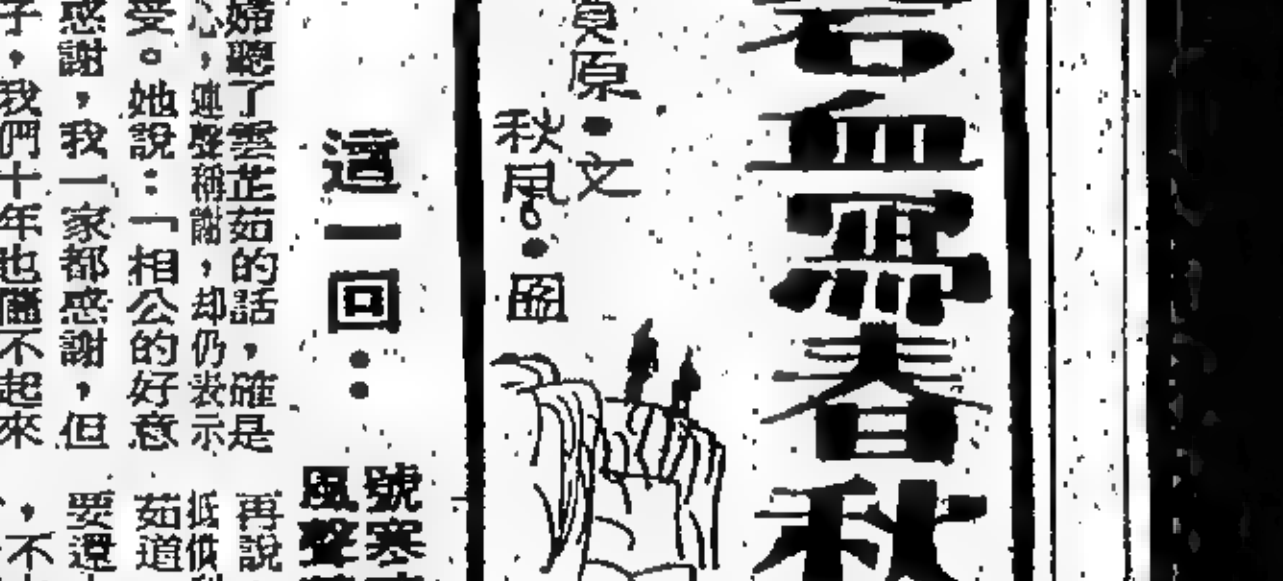 碧血黃春秋
原•文
秋風•圖
這一回：
號寒
風聲
婦聽了雲芷茹的話，確是
心，連聲稱謝，却仍表示
受。她說：「相公的好意
感謝，我一家都感謝，但
子，我們十年也儲不起來
再說
低微
茹道
要還
，不